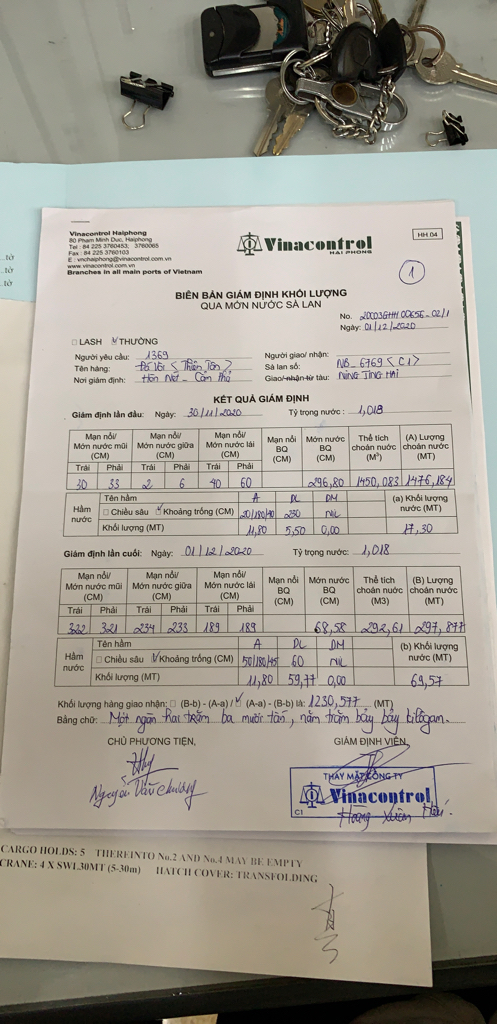 ..tờ
..tờ
..tờ
Vinacontrol Haiphong
80 Pham Minh Duc, Haiphong
Tel : 84 225 3760453; 3760065
Fax : 84 225 3760103
E : vnchaiphong@vinacontrol.com.vn
www.vinacontrol.com.vn
Branches in all main ports of Vietnam
Vinacontrol
HAI PHONG
HH.04
1
BIÊN BẢN GIÁM ĐỊNH KHỐI LƯỢNG
QUA MỚN NƯỚC SÀ LAN
No. 20G03GHH00656-02/1
Ngày: 01/12/2020
LASH THƯỜNG
Người yêu cầu: 1369 Người giao/ nhận:
Tên hàng: Đá Vôi <Thiên Tân> Sà lan số: NB-6769 <C1>
Nơi giám định: Hòn Nét - Cẩm Phả Giao/nhận từ tàu: NING JING HAI
KẾT QUẢ GIÁM ĐỊNH
Giám định lần đầu: Ngày: 30/11/2020 Tỷ trọng nước : 1,018
Mạn nổi/ Mớn nước mũi (CM) Mạn nổi/ Mớn nước giữa (CM) Mạn nổi/ Mớn nước lái (CM) Mạn nổi BQ (CM) Mớn nước BQ (CM) Thể tích choán nước (M³) (A) Lượng choán nước (MT)
Trái Phải Trái Phải Trái Phải
30 33 2 6 40 60 296,80 1450,083 1476,184
Hầm nước Tên hầm A DL DM (a) Khối lượng nước (MT)
Chiều sâu Khoảng trống (CM) 20/180/40 230 NIL
Khối lượng (MT) 11,80 5,50 0,00 17,30
Giám định lần cuối: Ngày: 01/12/2020 Tỷ trọng nước: 1,018
Mạn nổi/ Mớn nước mũi (CM) Mạn nổi/ Mớn nước giữa (CM) Mạn nổi/ Mớn nước lái (CM) Mạn nổi BQ (CM) Mớn nước BQ (CM) Thể tích choán nước (M3) (B) Lượng choán nước (MT)
Trái Phải Trái Phải Trái Phải
322 321 234 233 189 189 68,58 292,61 297,877
Hầm nước Tên hầm A DL DM (b) Khối lượng nước (MT)
Chiều sâu Khoảng trống (CM) 50/180/45 60 NIL
Khối lượng (MT) 11,80 59,77 0,00 69,57
Khối lượng hàng giao nhận: (B-b) - (A-a) / (A-a) - (B-b) là: 1230,577 (MT)
Bằng chữ: Một ngàn hai trăm ba mươi tấn, năm trăm bảy bảy kilôgam.
CHỦ PHƯƠNG TIỆN, GIÁM ĐỊNH VIÊN,
Nguyễn Văn Chương
THAY MẶT CÔNG TY
Vinacontrol
C1
Hoàng Xuân
CARGO HOLDS: 5 THEREINTO No.2 AND No.4 MAY BE EMPTY
CRANE: 4 X SWL30MT (5-30m) HATCH COVER: TRANSFOLDING